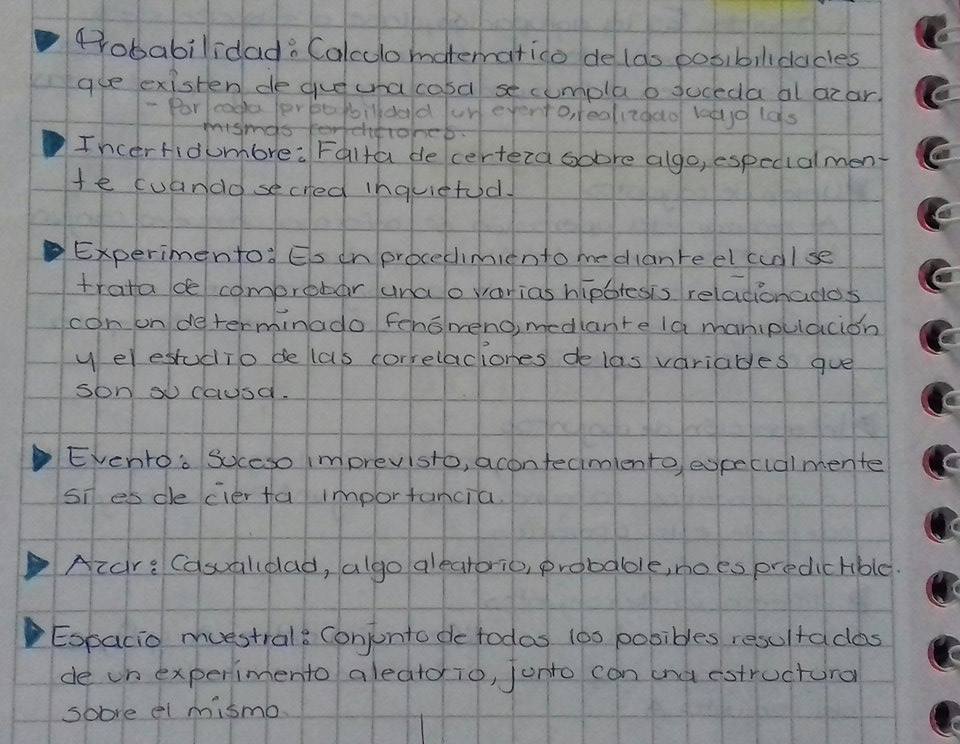 Probabilidad: Calculo matematico de las posibilidades
que existen de que una cosa se cumpla o suceda al azar.
- Por cada probabilidad un evento, realizado bajo las
mismas condiciones.
Incertidumbre: Falta de certeza sobre algo, especialmen-
te cuando se crea inquietud.
Experimento: Es un procedimiento mediante el cual se
trata de comprobar una o varias hipótesis relacionados
con un determinado fenómeno, mediante la manipulación
y el estudio de las correlaciones de las variables que
son su causa.
Evento: Suceso imprevisto, acontecimiento, especialmente
si es de cierta importancia.
Azar: Casualidad, algo aleatorio, probable, no es predictible.
Espacio muestral: Conjunto de todos los posibles resultados
de un experimento aleatorio, junto con una estructura
sobre el mismo.